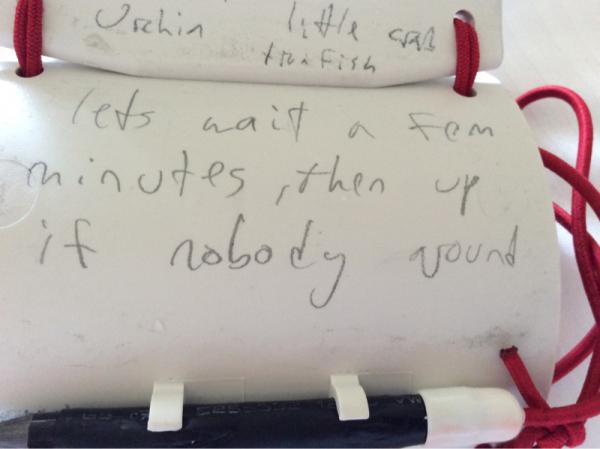 Urchin little crab
lets wait a few
minutes, then up
if nobody around